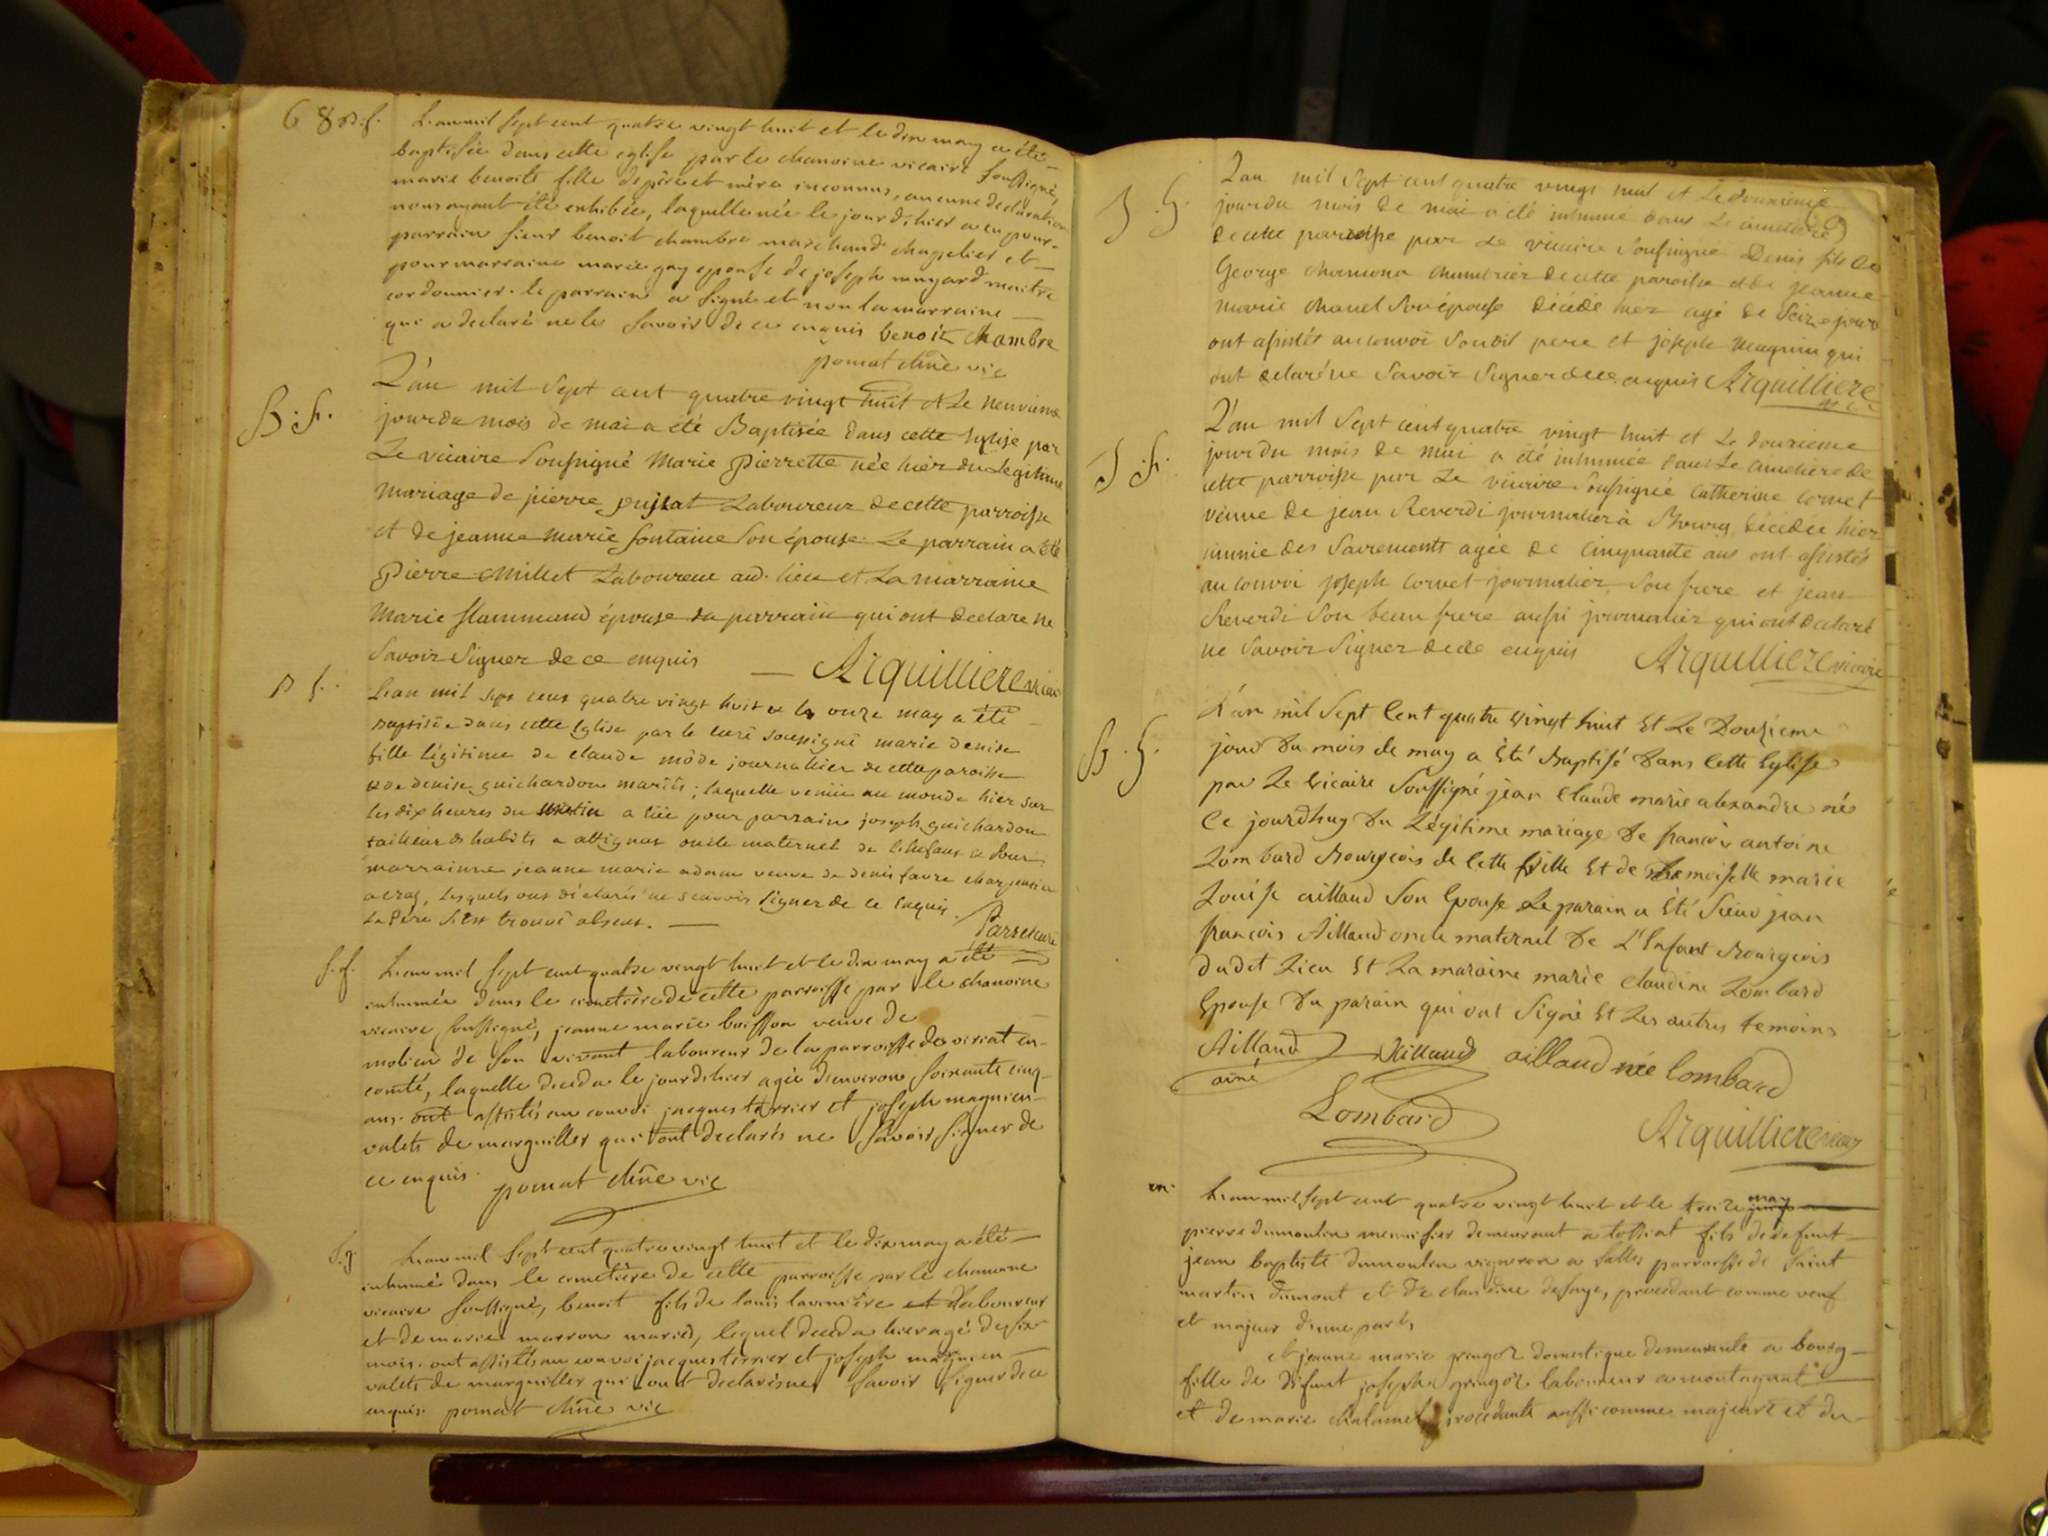 68 B.f. L'an mil sept cent quatre vingt huit et le dix may a été
baptisée dans cette eglise par le chanoine vicaire soussigné,
marie benoite fille de père et mère inconnus, aucune declaration
nous ayant été exhibée, laquelle née le jour d'hier a eu pour
parrain sieur benoit chambre marchand chapelier et
pour marraine marie gay epouse de joseph mugard maitre
cordonnier. le parrain a signé et non la marraine
qui a declaré ne le savoir de ce enquis benoit chambre
pomat chne vic
B. f. L'an mil sept cent quatre vingt huit et Le neuvieme
jour du mois de mai a été Baptisée dans cette Eglise par
Le vicaire soussigné Marie pierrette née hier du Legitime
mariage de pierre Laboureur de cette parroisse
et de jeanne marie fontaine son épouse. Le parrain a été
Pierre Millet Laboureur au. lieu et La marraine
Marie flammand épouse du parrain qui ont declare ne
savoir signer de ce enquis Arquilliere vicaire
B f. L'an mil sept cent quatre vingt huit & le onze may a été
baptisée dans cette Eglise par le curé soussigné marie denise
fille légitime de claude mode journallier de cette paroisse
& de denise guichardon mariés; laquelle venüe au monde hier sur
les dix heures du matin a eüe pour parrain joseph guichardon
tailleur d'habits a attignat oncle maternel de l'enfant & pour
marrainne jeanne marie adam veuve de denis favre charpentier
a cras, lesquels ont déclarés ne scavoir signer de ce enquis.
Le Père s'est trouvé absent.
S. f. L'an mil sept cent quatre vingt huit et le dix may a été
inhumée dans le cimetière de cette parroisse par le chanoine
vicaire soussigné, jeanne marie boisson veuve de
molieu de son vivant laboureur de la parroisse de viriat en
comté, laquelle deceda le jour d'hier agée d'environ soixante cinq
ans. ont assistés au convoi jacques terrier et joseph magnien
valets de marguiller qui ont declarés ne savoir signer de
ce enquis. pomat chne vic
S. g. L'an mil sept cent quatre vingt huit et le dix may a été
inhumé dans le cimetière de cette parroisse par le chanoine
vicaire soussigné, benoit fils de louis laviniere et laboureur
et de marie marron mariés, lequel deceda hier agé de six
mois. ont assistés au convoi jacques terrier et joseph magnien
valets de marguiller qui ont declarés ne savoir signer de ce
enquis. pomat chne vic
S. G. L'an mil sept cent quatre vingt huit et Le douzieme
jour du mois de mai a été inhumé dans Le cimetiere
de cette paroisse par Le vicaire soussigné Denis fils de
George de cette paroisse et de jeanne
marie son épouse decédé hier agé de Seize jours
ont assistés au convoi son dit pere et joseph Magnien qui
ont declaré ne savoir signer de ce enquis Arquilliere
S. f. L'an mil sept cent quatre vingt huit et Le douzieme
jour du mois de mai a été inhumée dans Le cimetiere de
cette parroisse par Le vicaire soussigné Catherine cornet
veuve de jean Reverdi journalier à Bourg, decedée hier
munie des sacrements agée de cinquante ans ont assistés
au convoi joseph cornet journalier son frere et jean
Reverdi son beau frere aussi journalier qui ont declaré
ne savoir signer de ce enquis Arquilliere vicaire
B. G. L'an mil sept Cent quatre vingt huit Et Le Douzieme
jour du mois de may a Eté Baptisé dans Cette Eglise
par Le Vicaire soussigné jean Claude marie alexandre né
Ce jourdhuy du Légitime mariage de françois antoine
Lombard Bourgeois de Cette ville Et de Demoiselle marie
Louise aillaud son Epouse Le parain a Eté sieur jean
francois Aillaud oncle maternel de L'Enfant Bourgeois
dudit Lieu Et La maraine marie Claudine Lombard
Epouse du parain qui ont signé Et Les autres temoins
Aillaud Aillaud aillaud née lombard
ainé
Lombard Arquilliere vicaire
m. L'an mil sept cent quatre vingt huit et le treize may
pierre dumoulin menuisier demeurant a tossiat fils de defunt
jean baptiste dumoulin vigneron a salles parroisse de saint
martin dumont et de claudine defaye, procedant comme veuf
et majeur d'une part,
et jeanne marie gringoz domestique demeurante a bourg
fille de défunt joseph gringoz laboureur a montagnat
et de marie chalamel procedante aussi comme majeure et du